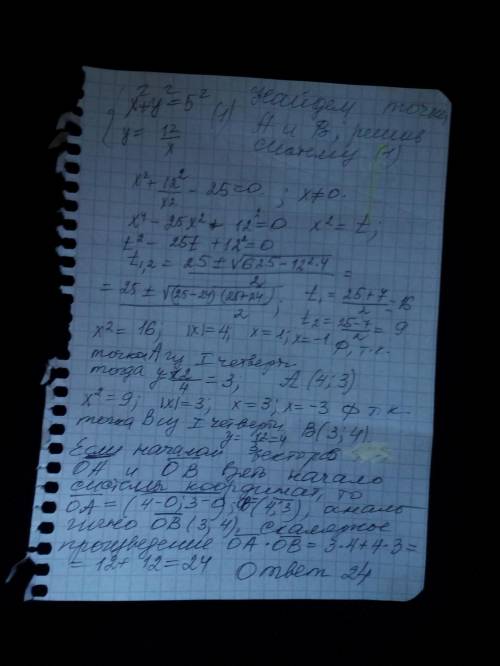 x²+y²=5² (1) Найдем точки
y=12/x А и В, решив
систему (1)
x²+12²/x²-25=0; x≠0.
x⁴-25x²+12²=0 x²=t;
t²-25t+12²=0
t₁,₂=(25±√(625-12²·4))/2=
=(25±√((25-24)(25+24)))/2; t₁=(25+7)/2=16
t₂=(25-7)/2=9
x²=16; |x|=4, x=1; x=-1 ф, т.к.
точка А из I четверти
тогда y=12/4=3, A(4;3)
x²=9; |x|=3; x=3; x=-3 ф т.к.
точка В из I четверти
y=12/3=4 B(3;4)
Если началом векторов
ОА и ОВ взять начало
системы координат, то
OA=(4-0;3-0)=(4;3), аналь
гично OB(3;4), скалярное
произведение OA·OB=3·4+4·3=
=12+12=24 Ответ 24